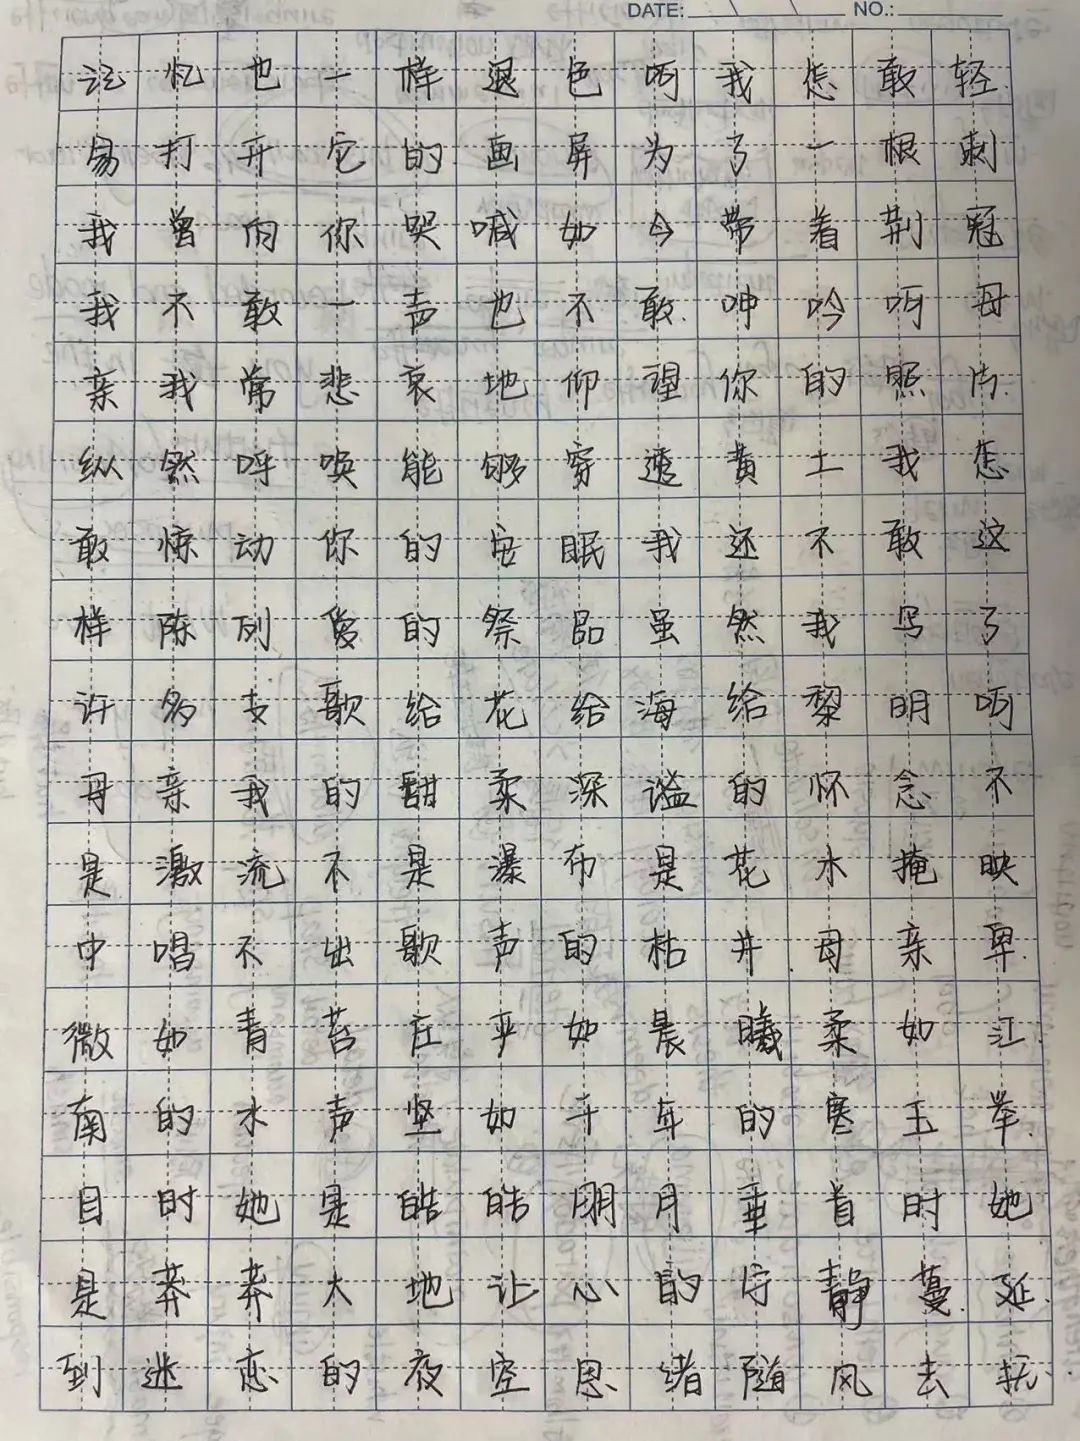 DATE: NO.:
记忆也一样退色呵我怎敢轻
易打开它的画屏为了一根刺
我曾向你哭喊如今带着荆冠
我不敢一声也不敢呻吟呵母
亲我常悲哀地仰望你的照片
纵然呼唤能够穿透黄土我怎
敢惊动你的安眠我还不敢这
样陈列爱的祭品虽然我写了
许多支歌给花给海给黎明呵
母亲我的甜柔深谧的怀念不
是激流不是瀑布是花木掩映
中唱不出歌声的枯井母亲卑
微如青苔庄乎如晨曦柔如江
南的水声坚如千年的寒玉举
目时她是皓皓明月垂首时她
是莽莽大地让心的宁静蔓延
到迷恋的夜空思绪随风去抚